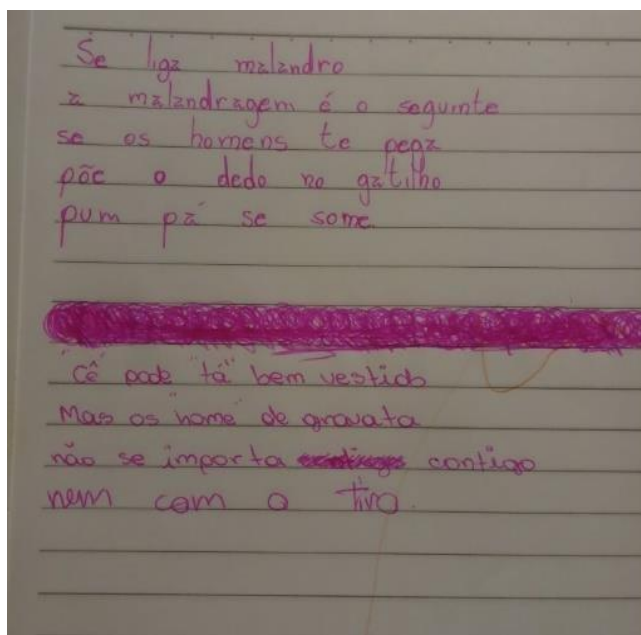 Se liga malandro
a malandragem é o seguinte
se os homens te pega
põe o dedo no gatilho
pum pá se some.
"Cê" pode "tá" bem vestido
Mas os "home" de gravata
não se importa contigo
nem com o tiro.